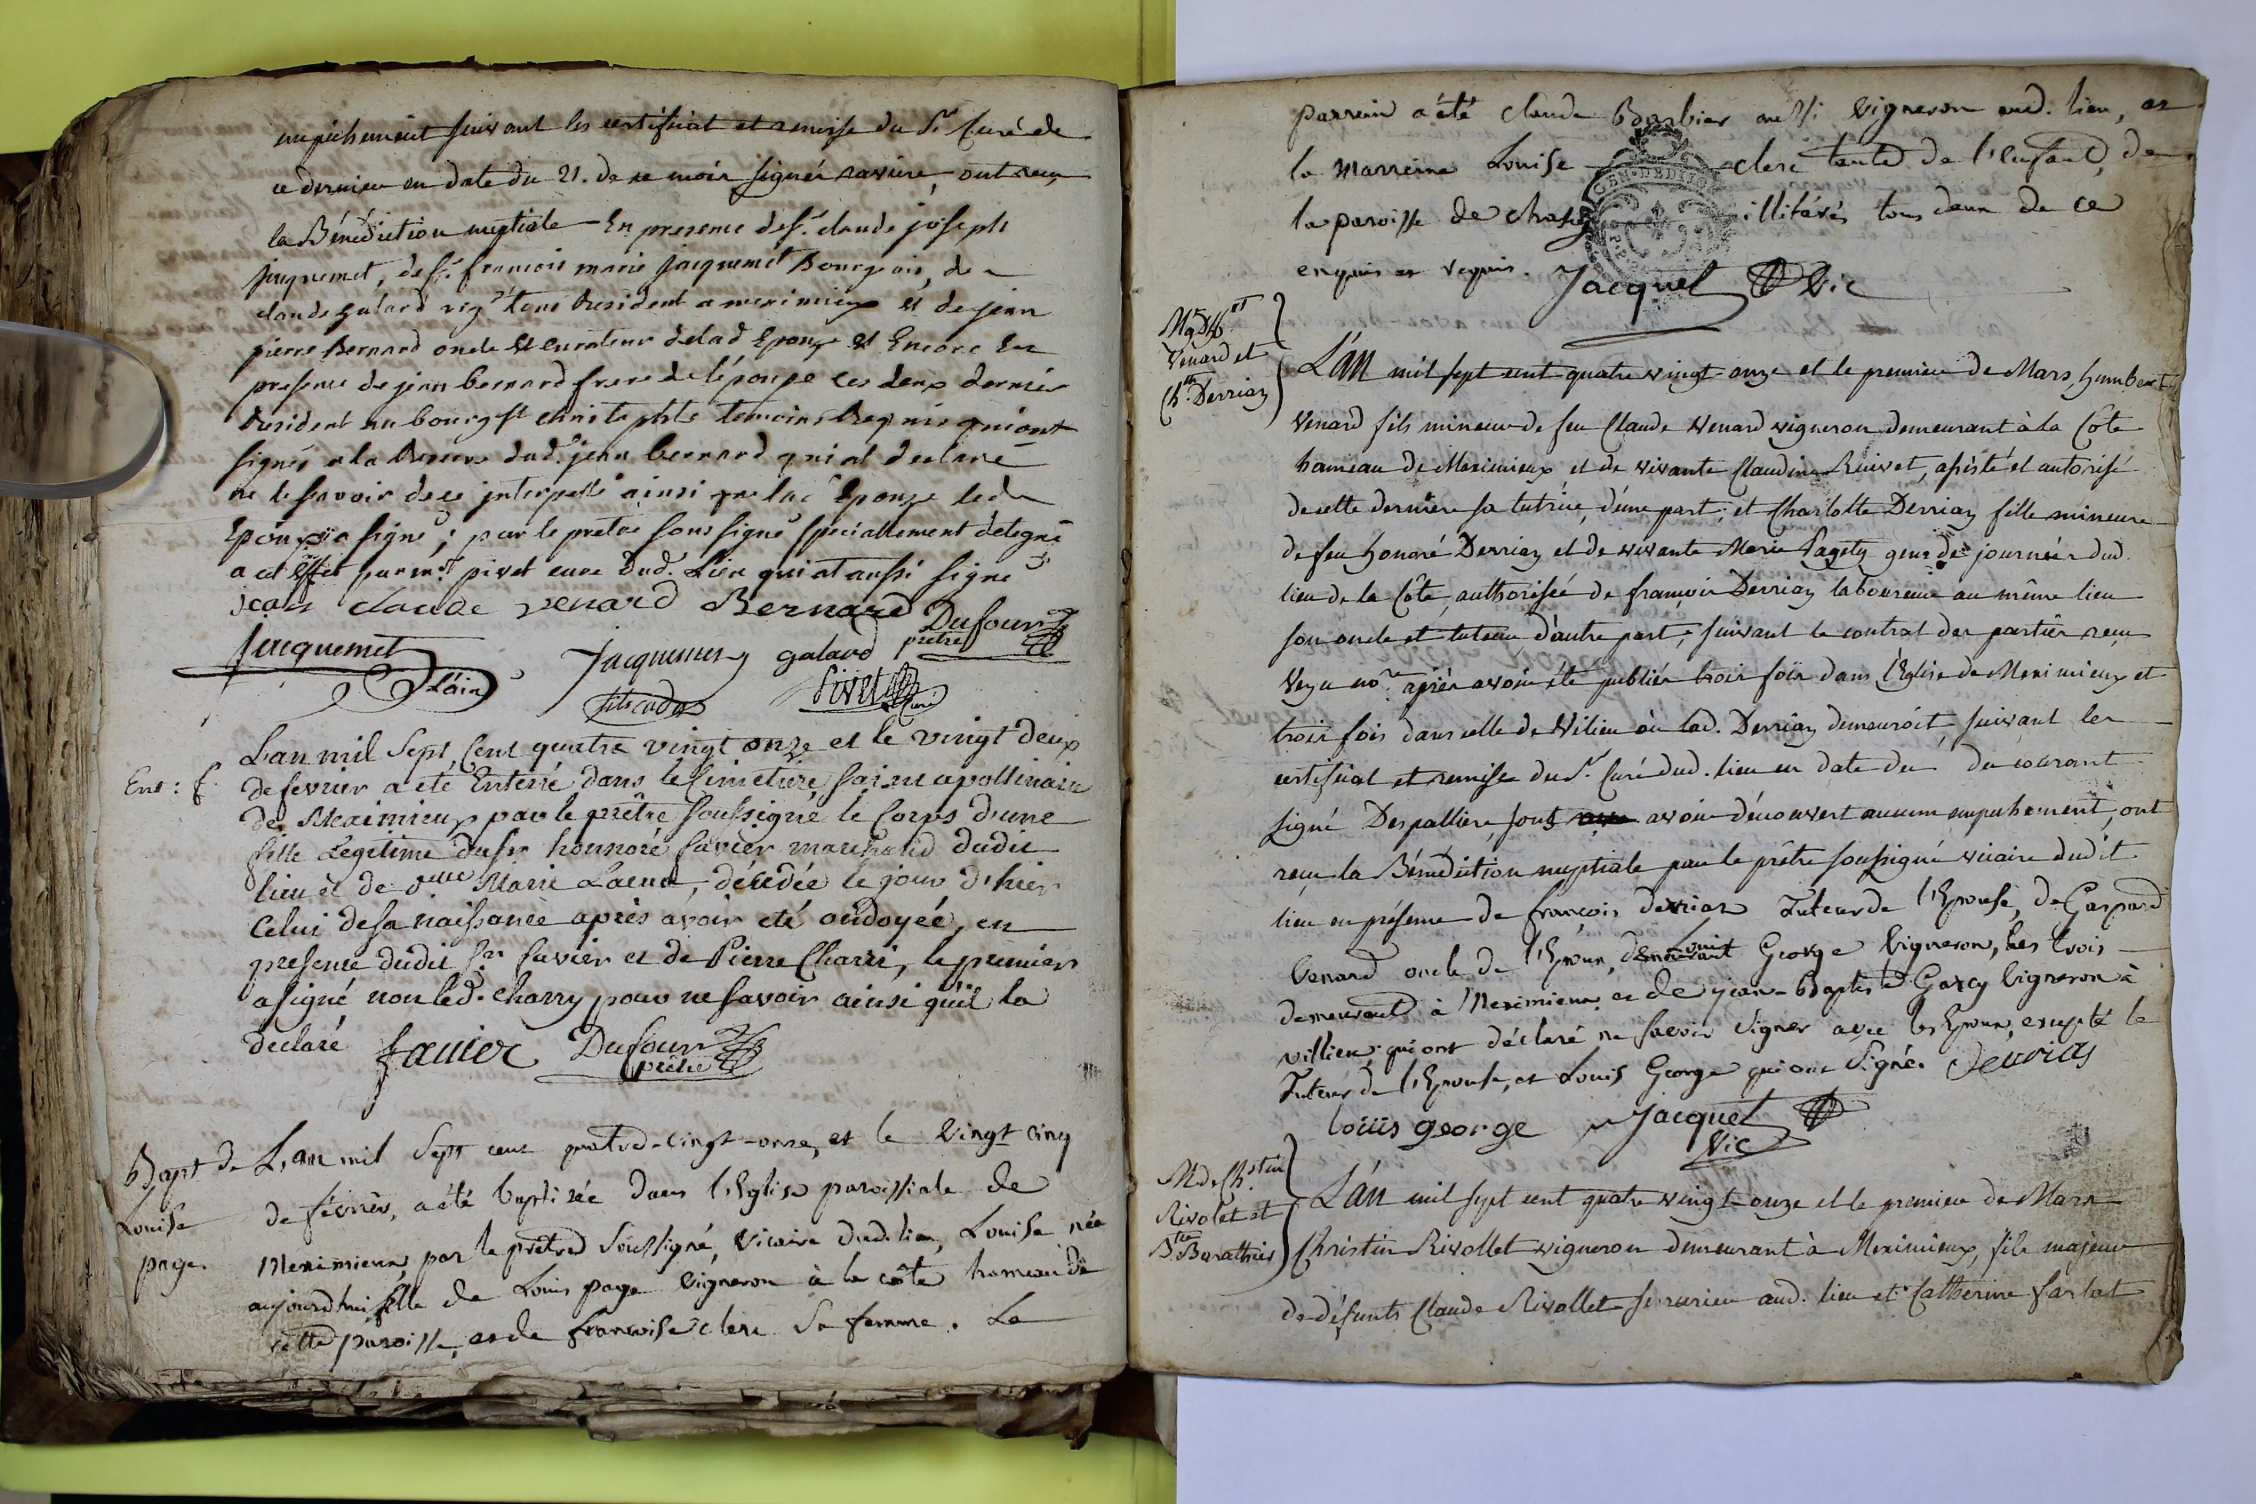 empêchement suivant les certificat et remise du Sr Curé de
ce dernier en date du 21. de ce mois signée ravier, ont reçu
la Bénédiction nuptiale En presence de Sr. claude joseph
jaquemet, de Sr. francois marie jacquemet Bourgois, de
claude galard vigr. tous Resident a meximieux et de jean
pierre Bernard oncle et curateur de lad Epouse et Encore En
presence de jean bernard frere de l'épouse ces deux dernier
Resident au bourg st christophle temoins Requis qui ont
signés a la Reserve dud. jean bernard qui at declaré
ne le savoir de ce interpellé ainsi que lad. Epouse led
Epoux a signé; par le pretre soussigné specialement delegué
a cet effet par mr. pivet curé dud. Lieu qui at aussi signé
jean claude venard Bernard Dufour
prêtre
jacquemet Jacquemet galard
L'ain Pivet
Curé
Ent : f.
L'an mil Sept Cent quatre vingt onze et le vingt deux
de fevrier a eté Enterré dans le Cimetiere saint apollinaire
de Meximieux par le prêtre soussigné le Corps d'une
fille Legitime du sr honnoré favier marchand dudit
lieu et de delle Marie Laena, décédée le jour d'hier
Celui de sa naissance après avoir eté ondoyée, en
presence dudit Sr favier et de Pierre Charri, le premier
a signé non led. charry pour ne savoir ainsi qu'il la
declaré favier Dufour
prêtre
Bapt de
Louise
page.
L'an mil Sept cent quatre-vingt-onze, et le vingt cinq
de février, a été baptisée dans l'Eglise paroissiale de
Meximieux par le prêtre Soussigné, vicaire dud. lieu, Louise née
aujourd'hui fille de Louis page vigneron à la côte hameau de
cette paroisse, et de francoise clerc sa femme. Le
parrein a été claude Barbier aussi vigneron aud. lieu, et
la marreine Louise clerc tante de l'enfant, de
la paroisse de illitérés tous deux de ce
enquis et requis. Jacquet Vic
Venard et
Chte. Derriaz
L'An mil sept cent quatre vingt onze et le premier de Mars, humbert
Venard fils mineur de feu Claude Venard vigneron demeurant à la Côte
hameau de Meximieux et de vivante Claudine Ruivet, assisté et autorisé
de cette dernière sa tutrice, d'une part; et Charlotte Derriaz fille mineure
de feu honoré Derriaz et de vivante Marie Pagety gens de journée dud
lieu de la Côte, authorisée de françois Derriaz laboureur au même lieu
son oncle et tuteur, d'autre part; suivant le contrat des parties reçu
Veyu nore. après avoir été publiés trois fois dans l'Eglise de Meximieux et
trois fois dans celle de Vilieu où lad. Derriaz demeuroit, suivant les
certificat et remise du Sr Curé dud. lieu en date du du courant
signé Despallieres, sans avoir découvert aucun empechement, ont
reçu la Bénédiction nuptiale par le prêtre soussigné vicaire dudit
lieu en présence de françois derriaz Tuteur de l'Epouse, de Gaspard
Venard oncle de l'Epoux, de Louis George vigneron, les trois
demeurant à Meximieux et de jean-Baptiste Garcy vigneron à
villieu; qui ont déclaré ne savoir signer avec les Epoux, excepté le
Tuteur de l'Epouse, et Louis George qui ont signé. derrias
loüis george Jacquet
Vic
M. de Chstin
Rivolet et
Barathier
L'An mil sept cent quatre vingt-onze et le premier de Mars
Christin Rivollet vigneron demeurant à Meximieux, fils majeur
de défunts Claude Rivollet serrurier aud. lieu et Catherine farlat